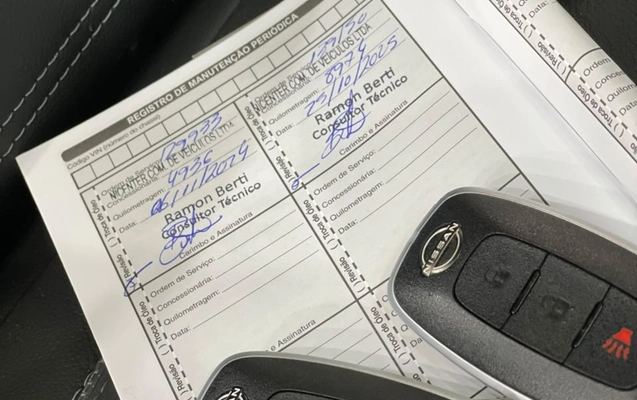 REGISTRO DE MANUTENÇÃO PERIÓDICA
Código VIN (número do chassi)
Ordem de Serviço:
NICENTER COM. DE VEÍCULOS LTDA
Quilometragem: 4936
Data: 06/11/2024
Ramon Berti
Consultor Técnico
Carimbo e Assinatura
( ) Revisão ( ) Troca de Óleo
NICENTER COM. DE VEÍCULOS LTDA
Quilometragem: 8974
Data: 25/10/2025
Ramon Berti
Consultor Técnico
Carimbo e Assinatura
( ) Revisão ( ) Troca de Óleo
Ordem de Serviço:
Concessionária:
Quilometragem:
Data:
Carimbo e Assinatura
( ) Revisão ( ) Troca de Óleo
Ordem de Serviço:
Concessionária:
Quilometragem:
Data:
( ) Revisão ( ) Troca de Óleo
NISSAN